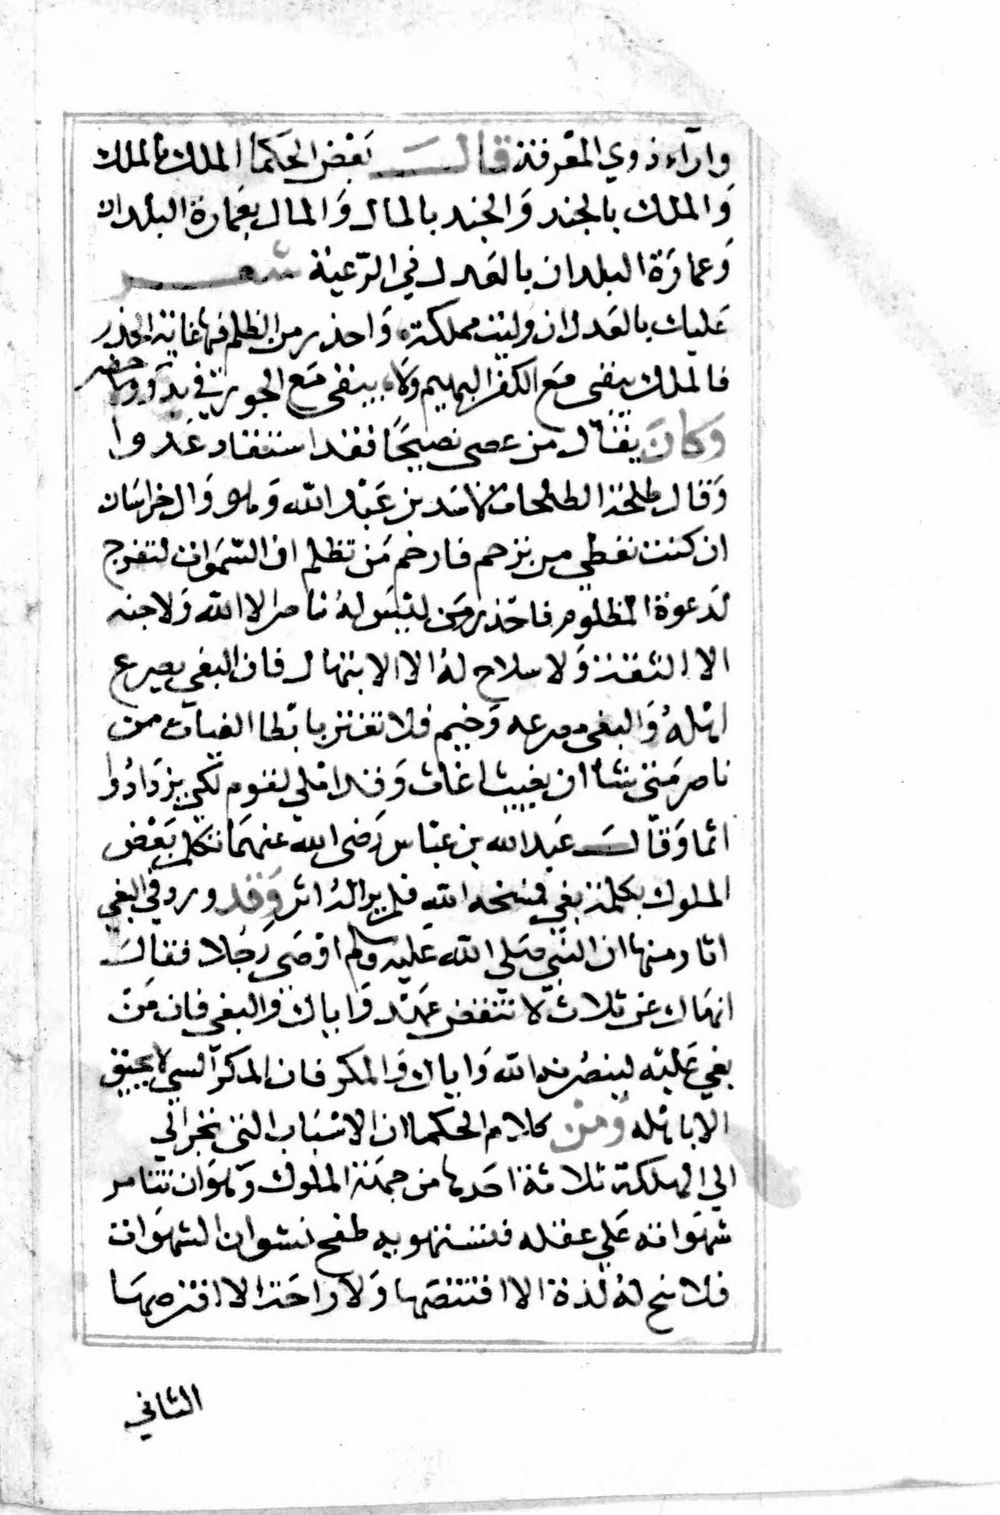 وارآء ذوي المعرفة قالـــ بعض الحكما الملك بالملك
والملك بالجند والجند بالمال والمال بعمارة البلدان
وعمارة البلدان بالعدل في الرعية شعـــر
عليك بالعدل ان وليت مملكة واحذر من الظلم فيها غاية الحذر
فالملك يبقى مع الكفر البهيم ولا يبقى مع الجور في بدو وحضر
وكان يقال من عصى نصيحا فقد استفاد عدوا
وقال طلحة الطلحات لاسد بن عبد الله وهو وال خراسان
ان كنت تعطي من ترحم فارحم من تظلم ان السموات لتفرج
لدعوة المظلوم فاحذر من ليس له ناصر الا الله ولا جنه
الا الثقة ولا سلاح له الا الابتهال فان البغي يصرع
اهله والبغي مصرعه وخيم فلا تغتر بابطا الغياث من
ناصر متى شا ان يغيث اغاث وقد املي لقوم لكي يزدادوا
اثما وقالـــ عبد الله بن عباس رضى الله عنهما تكلم بعض
الملوك بكلمة بغي فمسخه الله فلم ير الدائر وقد ورد في البغي
اثار منها ان النبي صلى الله عليه وسلم اوصى رجلا فقال
انهاك عن ثلاث لا تنقض عهد واياك والبغي فان من
بغي عليه لينصرنه الله واياك والمكر فان المكر السي لا يحيق
الا باهله ومن كلام الحكما ان الاسباب التي تجر الي
الي الهلكة ثلاثة احدها من جهة الملوك وهو ان تتامر
شهواته علي عقله فتستهويه طفح نشوان الشهوات
فلا سنح له لذة الا اقتنصها ولا راحة الا افترصها
الثاني